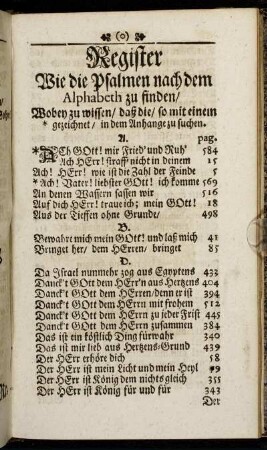 (o)
Register
Wie die Psalmen nach dem
Alphabeth zu finden/
Wobey zu wissen/ daß die/ so mit einem
* gezeichnet/ in dem Anhange zu suchen.
A. pag.
* ACh GOtt! mir Fried' und Ruh' 584
Ach HErr! straff' nicht in deinem 15
Ach! HErr! wie ist die Zahl der Feinde 5
* Ach! Vater! liebster GOtt! ich komme 569
An denen Wassern sassen wir 516
Auf dich HErr! traue ich; mein GOtt! 18
Aus der Tieffen ohne Grunde/ 498
B.
Bewahre mich mein GOtt! und laß mich 41
Bringet her/ dem HErren/ bringet 85
D.
Da Israel nunmehr zog aus Egyptens 432
Danck't GOtt dem HErr'n aus Hertzens 404
Danck't GOtt dem HErren/ denn er ist 394
Danck't GOtt dem HErrn mit frohem 512
Danck't GOtt dem HErrn zu jeder Frist 445
Danck't GOtt dem HErrn zusammen 384
Das ist ein köstlich Ding fürwahr 340
Das ist mir lieb aus Hertzens-Grund 439
Der HErr erhöre dich 58
Der HErr ist mein Licht und mein Heyl 79
Der HErr ist König dem nichts gleich 355
Der HErr ist König für und für 343
Der